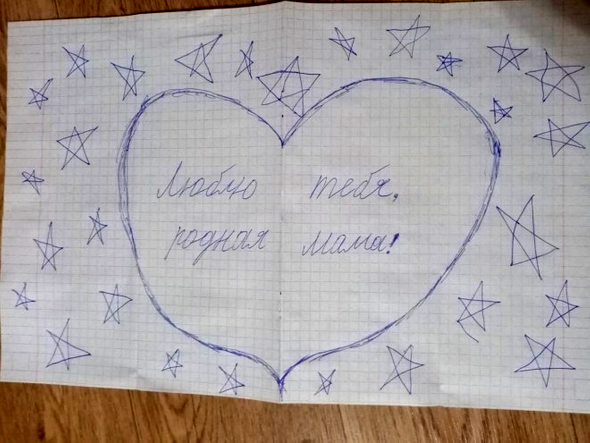 Люблю тебя,
родная мама!